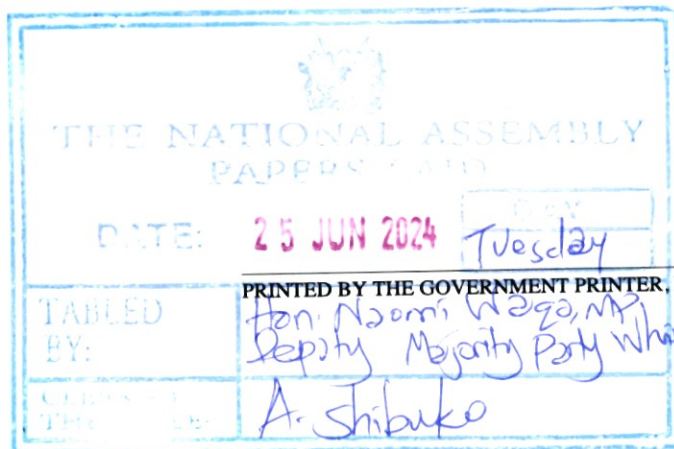 THE NATIONAL ASSEMBLY
PAPERS LAID
DATE: 25 JUN 2024 DAY
Tuesday
PRINTED BY THE GOVERNMENT PRINTER,
TABLED BY: Hon. Naomi Waqo, MP,
Deputy Majority Party Whi
CLERK
THE A. Shibuko